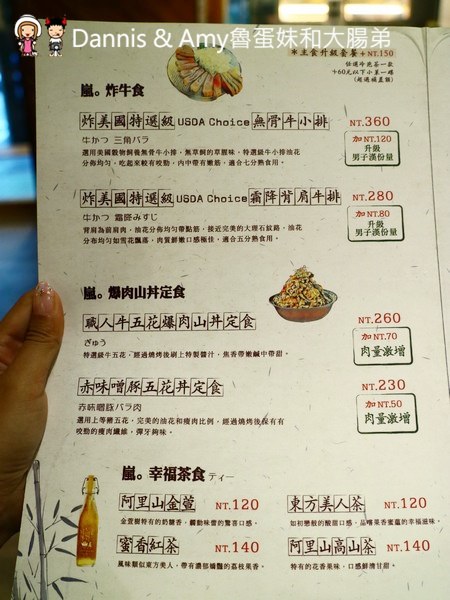 Dannis & Amy魯蛋妹和大腸弟
※主食升級套餐+NT.150
任選牛蒡茶一款
+60元以下小菜一碟
嵐。炸牛食
炸美國特選級USDA Choice無骨牛小排 NT.360
牛かつ 三角バラ
選用美國穀物飼養無骨牛小排，無草飼的草腥味，特選級牛小排油花
分佈均勻，吃起來較有咬勁，肉中帶有嫩筋，適合七分熟食用。
加NT.120
升級
男子漢份量
炸美國特選級USDA Choice霜降背肩牛排 NT.280
牛かつ 霜降みすじ
背肩為前肩肉，油花分佈均勻帶點筋，接近完美的大理石紋路，油花
分布均勻如雪花飄落，肉質鮮嫩口感極佳，適合五分熟食用。
加NT.80
升級
男子漢份量
嵐。爆肉山丼定食
職人牛五花爆肉山丼定食 NT.260
ぎゅう
特選級牛五花，經過燒烤後刷上特製醬汁，焦香帶嫩鹹中帶甜。
加NT.70
肉量激增
赤味噌豚五花丼定食 NT.230
赤味噌豚バラ肉
選用上等豬五花，完美的油花和瘦肉比例，經過燒烤後保有有
咬勁的瘦肉纖維，彈牙夠味。
加NT.50
肉量激增
嵐。幸福茶食 ティー
阿里山金萱 NT.120
金萱樹特有的奶韻香，觸動味蕾的驚喜口感。
東方美人茶 NT.120
如初戀般的酸甜口感，品嚐果香蜜蘊的幸福滋味。
蜜香紅茶 NT.140
風味類似東方美人，帶有濃郁嬌豔的荔枝果香。
阿里山高山茶 NT.140
特有的花香果味，口感鮮清甘甜。